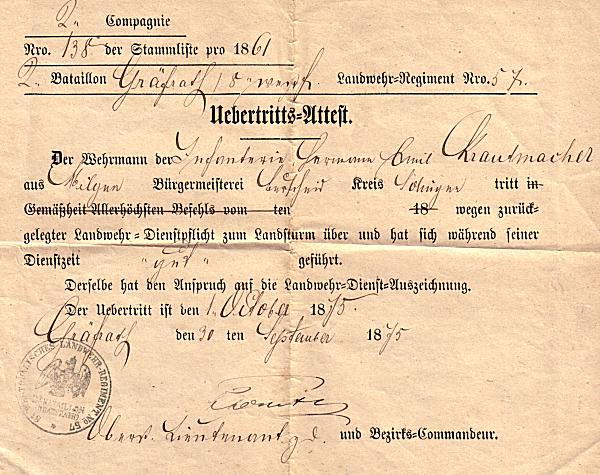 2. Compagnie
Nro. 138 der Stammliste pro 1861
2. Bataillon Gräfrath Landwehr-Regiment Nro. 57.
Uebertritts-Attest.
Der Wehrmann der Infanterie Hermann Emil Krautmacher
aus Hilgen Bürgermeisterei Burscheid Kreis Solingen tritt in
Gemäßheit Allerhöchsten Befehls vom ten 18 wegen zurück-
gelegter Landwehr-Dienstpflicht zum Landsturm über und hat sich während seiner
Dienstzeit "gut" geführt.
Derselbe hat den Anspruch auf die Landwehr-Dienst-Auszeichnung.
Der Uebertritt ist den 1. October 1875.
Gräfrath den 30 ten September 1875
LANDWEHR-REGIMENT No 57
Oberst Lieutenant z. D. und Bezirks-Commandeur.